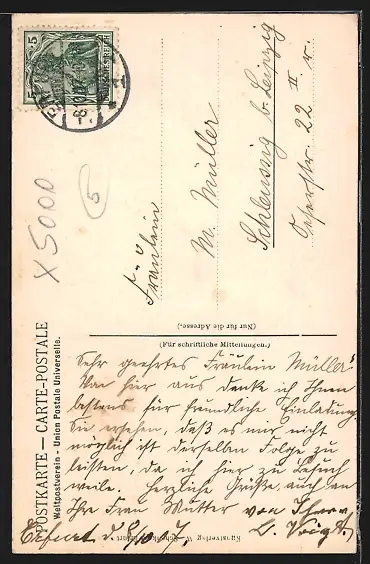 POSTKARTE — CARTE-POSTALE
Weltpostverein - Union Postale Universelle.
5
5
X 5000
5
Fräulein
M. Müller
Schleussig b. Leipzig
22 II r.
(Nur für die Adresse.)
(Für schriftliche Mitteilungen.)
Sehr geehrtes Fräulein Müller!
Von hier aus danke ich Ihnen
bestens für freundliche Einladung.
Sie ersehen, daß es mir nicht
möglich ist derselben Folge zu
leisten, da ich hier zu Besuch
weile. Herzliche Grüße, auch an
Ihre Frau Mutter von Ihrem
Erfurt d. 8/10 7. L. Voigt.
Kunstverlag W.